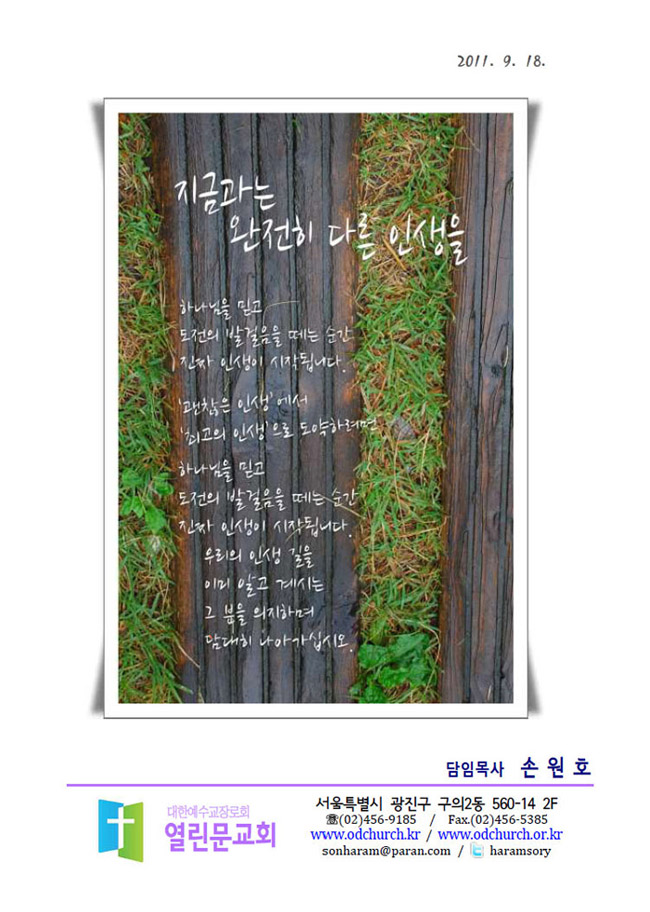 2011. 9. 18.
지금과는
완전히 다른 인생을
하나님을 믿고
도전의 발걸음을 떼는 순간
진짜 인생이 시작됩니다.
'괜찮은 인생'에서
'최고의 인생'으로 도약하려면
하나님을 믿고
도전의 발걸음을 떼는 순간
진짜 인생이 시작됩니다.
우리의 인생 길을
이미 알고 계시는
그 분을 의지하며
담대히 나아가십시오.
담임목사 손 원 호
대한예수교장로회
열린문교회
서울특별시 광진구 구의2동 560-14 2F
☏(02)456-9185 / Fax.(02)456-5385
www.odchurch.kr / www.odchurch.or.kr
sonharam@paran.com / haramsory